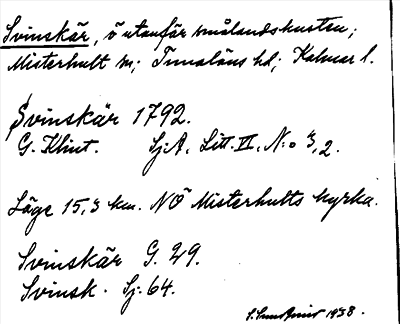 Svinskär, ö utanför smålandskusten;
Misterhult sn; Tunaläns hd; Kalmar l.
Svinskär 1792.
G. Klint. Sj.A. Litt. II. N:o 3,2.
Läge 15,3 km. NÖ Misterhults kyrka.
Svinskär G. 29.
Svinsk. Sj. 64.
1938.